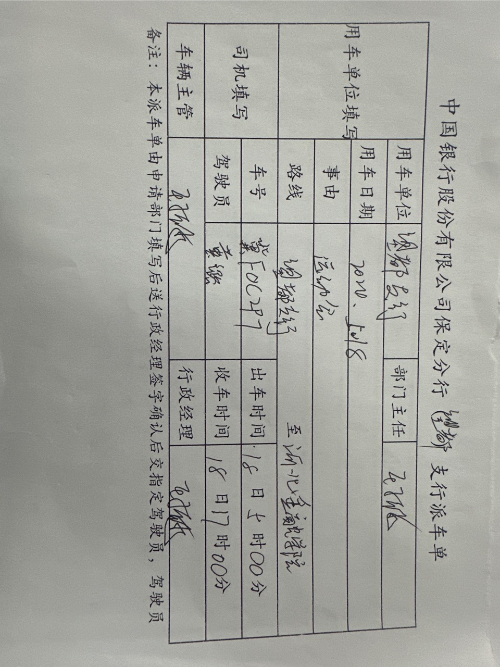 中国银行股份有限公司保定分行 望都 支行派车单
用车单位填写 用车单位 望都支行 部门主任
用车日期
事由 运动会
路线 望都支行 至 河北金融学院
司机填写 车号 冀F0C297 出车时间 18日5时00分
驾驶员 收车时间 18日17时00分
车辆主管 行政经理
备注：本派车单由申请部门填写后送行政经理签字确认后交指定驾驶员，驾驶员